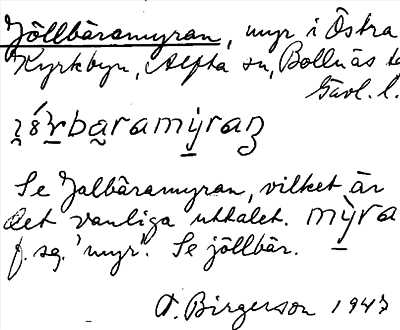 Jöllbäramyran, myr i Östra
Kyrkbyn, Alfta sn, Bollnäs
Gävl. l.
Se Jalbäramyran, vilket är
det vanliga uttalet. mỳra
f. sg. 'myr'. Se jöllbär.
A. Birgerson 1947